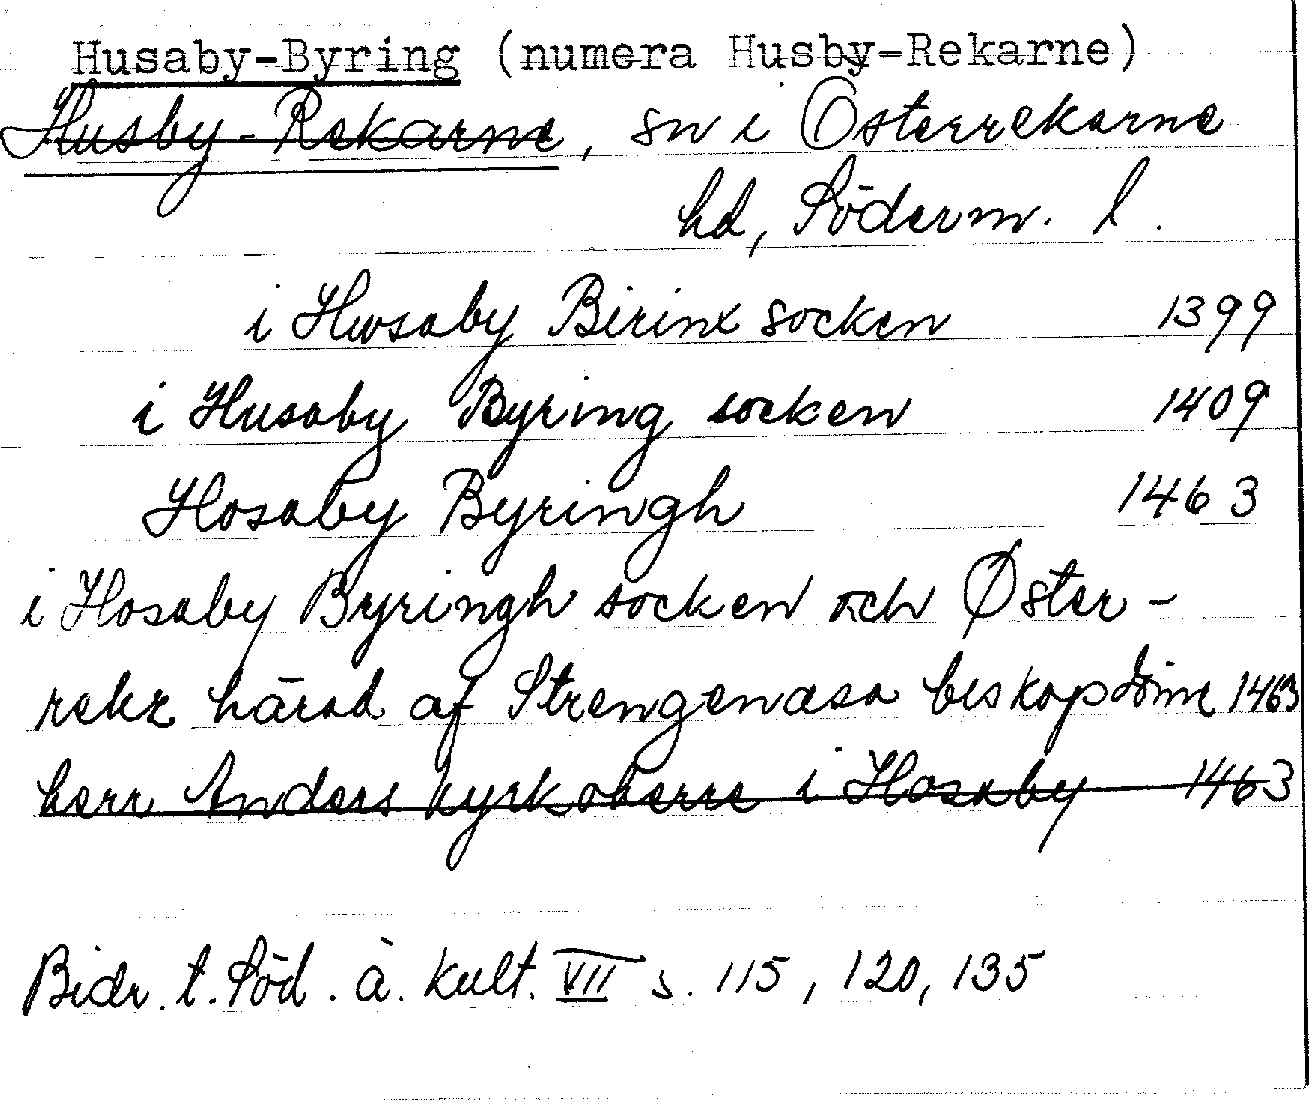 Husaby-Byring (numera Husby-Rekarne)
Husby-Rekarne, sn i Österrekarne
hd, Söderm. l.
i Hwsaby Birinx socken 1399
i Husaby Byring socken 1409
Hosaby Byringh 1463
i Hosaby Byringh socken och Øster-
rekr härad af Strengenæsa beskopdöme 1463
herr Anders kyrkoherre i Hosaby 1463
Bidr. t. Söd. ä. kult. VII s. 115, 120, 135